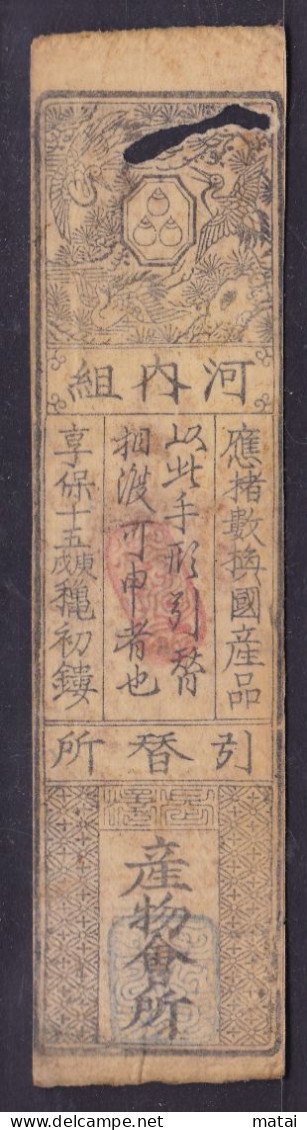 組内河
應楮數換國産品
以此手形引替
相渡可申者也
享保十五庚戌穐初鏤
所替引
産物會所
matai